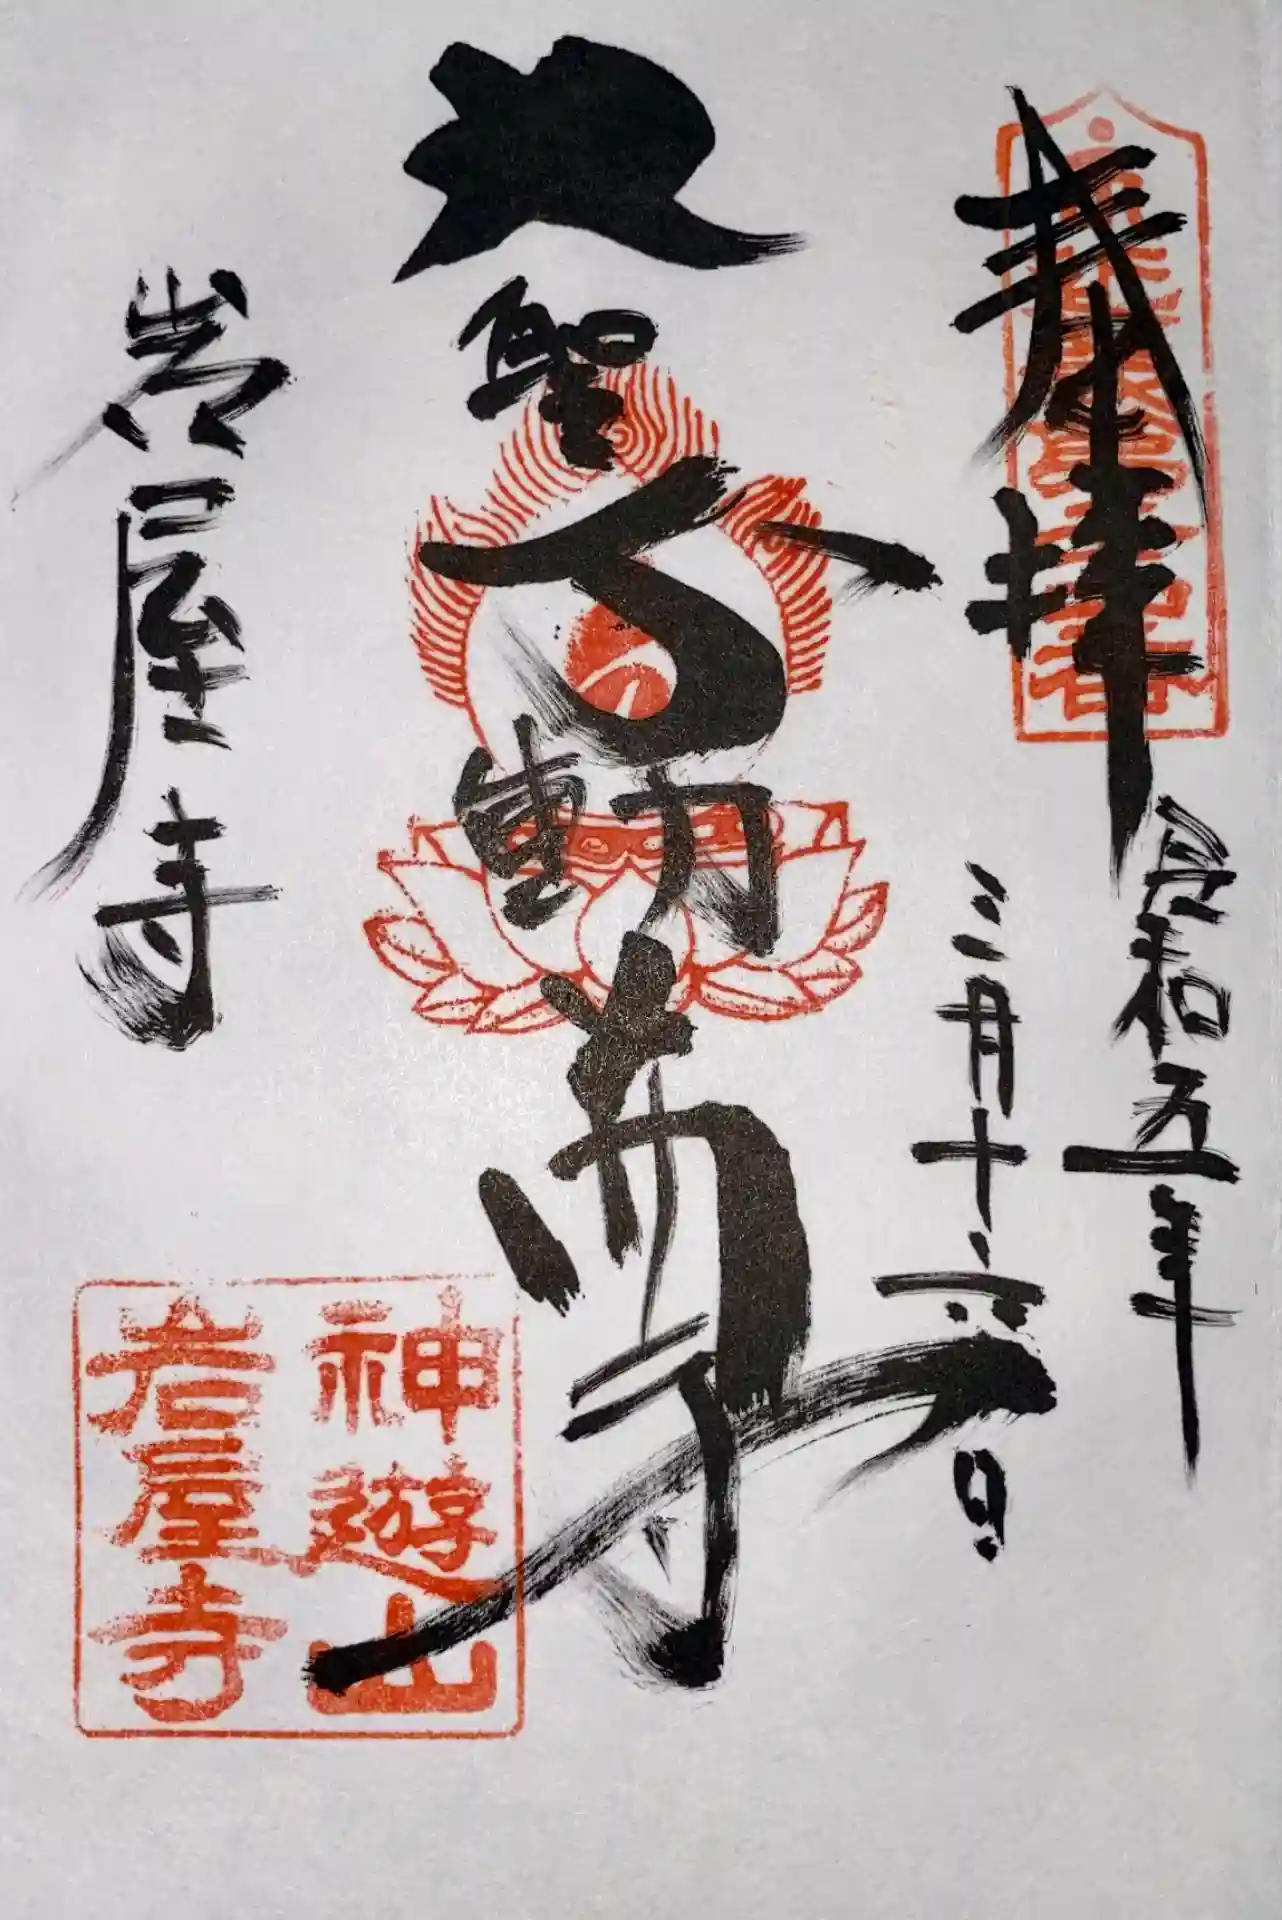 奉拝
令和五年
三月十六日
大聖不動尊
岩屋寺
神遊山
岩屋寺